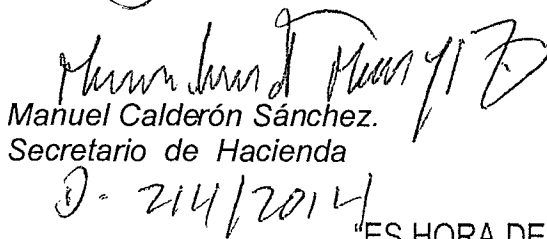 Manuel Calderón Sánchez.
Secretario de Hacienda
D- 214/2014
"ES HORA DE